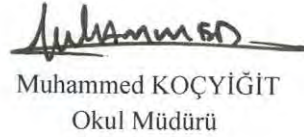 MUHAMMED
Muhammed KOÇYİĞİT
Okul Müdürü